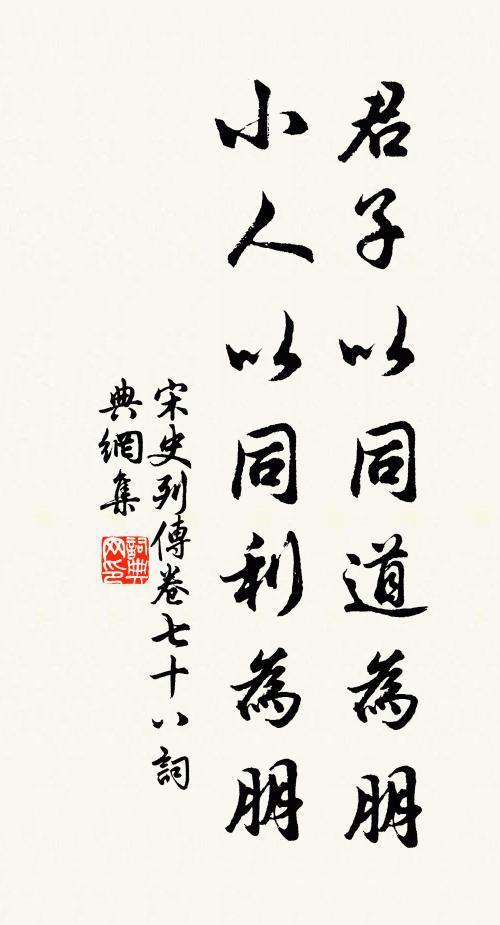 君子以同道為朋
小人以同利為朋
宋史列傳卷七十八詞
典網集
詞典
网印